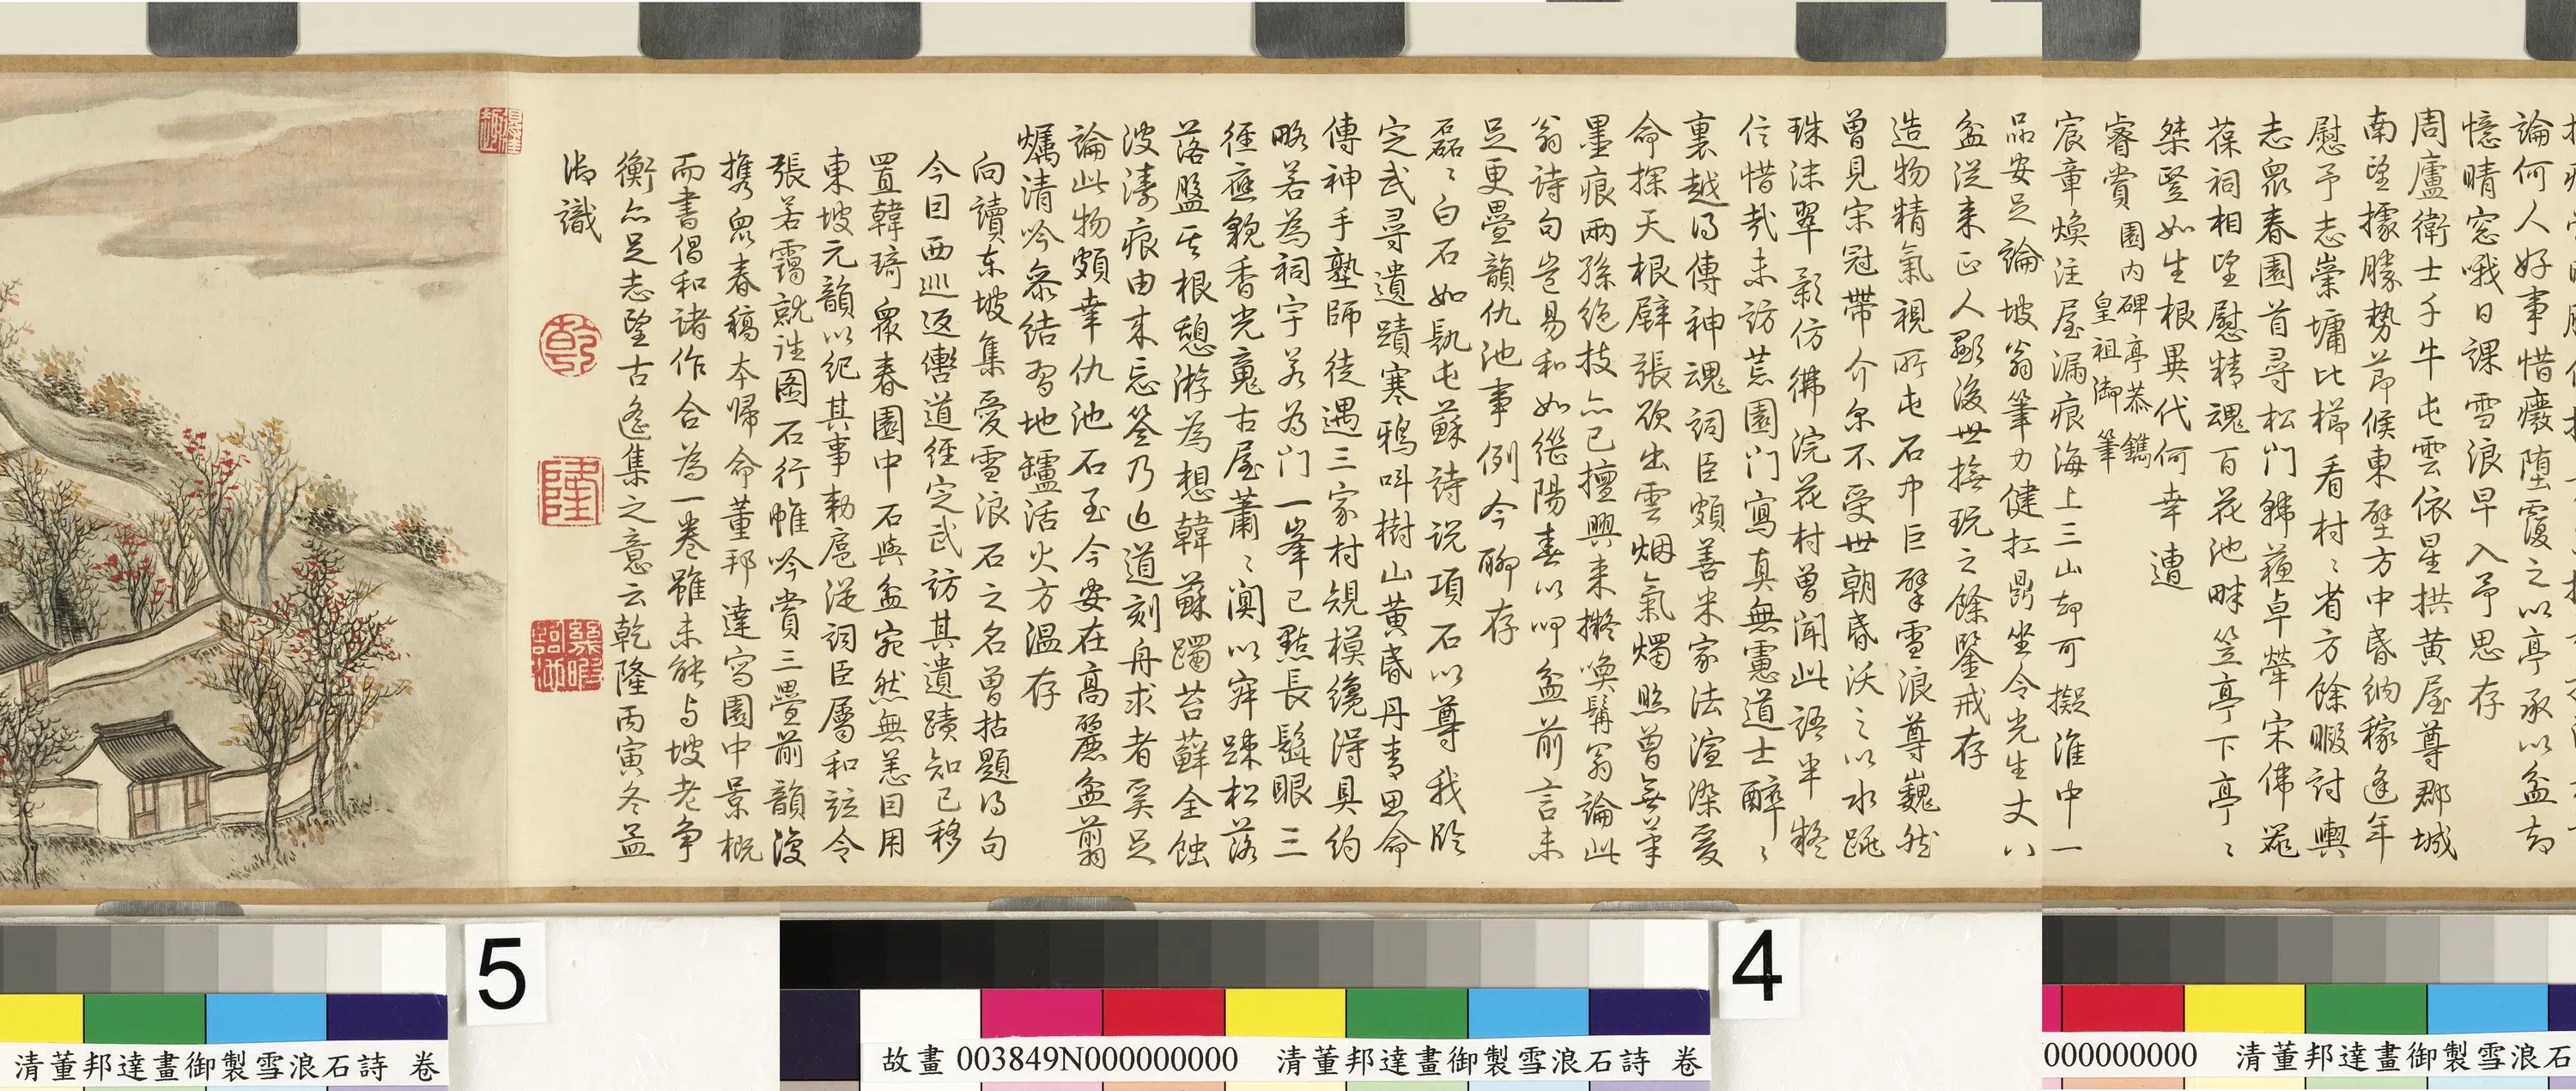 論何人好事惜癈墮覆之以亭承以盆却
憶晴窓哦日課雪浪早入予思存
周廬衛士千牛屯雲依星拱黃屋尊郡城
南望據勝勢節候東壁方中昏納稼逢年
慰予志崇墉比櫛看村〻省方餘暇討輿
志衆春園首尋松門韓蘓卓犖宋佛罷
葆祠相望慰精魂百花池畔笠亭下亭〻
桀豎如生根異代何幸遭
睿賞 園内碑亭恭鐫
皇祖御筆
宸章煥注屋漏痕海上三山却可擬淮中一
品安足論坡翁筆力健扛鼎坐令光生丈八
盆從来正人顯後世撫玩之餘鑒戒存
造物精氣視所屯石中巨擘雪浪尊巍然
曾見宋冠帶介尔不受世朝昏沃之以水跳
珠沫翠影仿彿浣花村曾聞此語半疑
信惜哉未訪荒園門寫真無憲道士醉〻
裏越得傳神魂詞臣頗善米家法渲染爰
命探天根擘張欲出雲烟氣燭照曾無筆
墨痕兩孫絶技亦已擅興来擬喚髯翁論此
翁詩句豈易和如繼陽春以叩盆前言未
足更疊韻仇池事例今聊存
磊〻白石如執屯蘇詩説項石以尊我臨
定武尋遺蹟寒鴉叫樹山黃昏丹青思命
傳神手塾師徒遇三家村規模纔得具約
略若為祠宇若為門一峯已點長髭眼三
徑應貌香光䰟古屋蕭〻澗以寂踈松落
落盤其根憩游為想韓蘇躅苔蘚全蝕
波濤痕由来忘筌乃近道刻舟求者奚足
論此物頗幸仇池石至今安在高麗盆翦
爥清吟參結習地罏活火方温存
向讀東坡集愛雪浪石之名曾拈題得句
今因西巡返轡道經定武訪其遺蹟知已移
置韓琦衆春園中石與盆宛然無恙因用
東坡元韻以紀其事勅扈從詞臣屬和竝令
張若靄就詿圖石行帷吟賞三疊前韻復
攜衆春稿本歸命董邦達寫園中景概
而書倡和諸作合為一卷雖未能与坡老爭
衡亦足志望古遙集之意云乾隆丙寅冬孟
御識
乾
隆
5
4
清董邦達畫御製雪浪石詩 卷
故畫 003849N000000000 清董邦達畫御製雪浪石詩 卷
000000000 清董邦達畫御製雪浪石